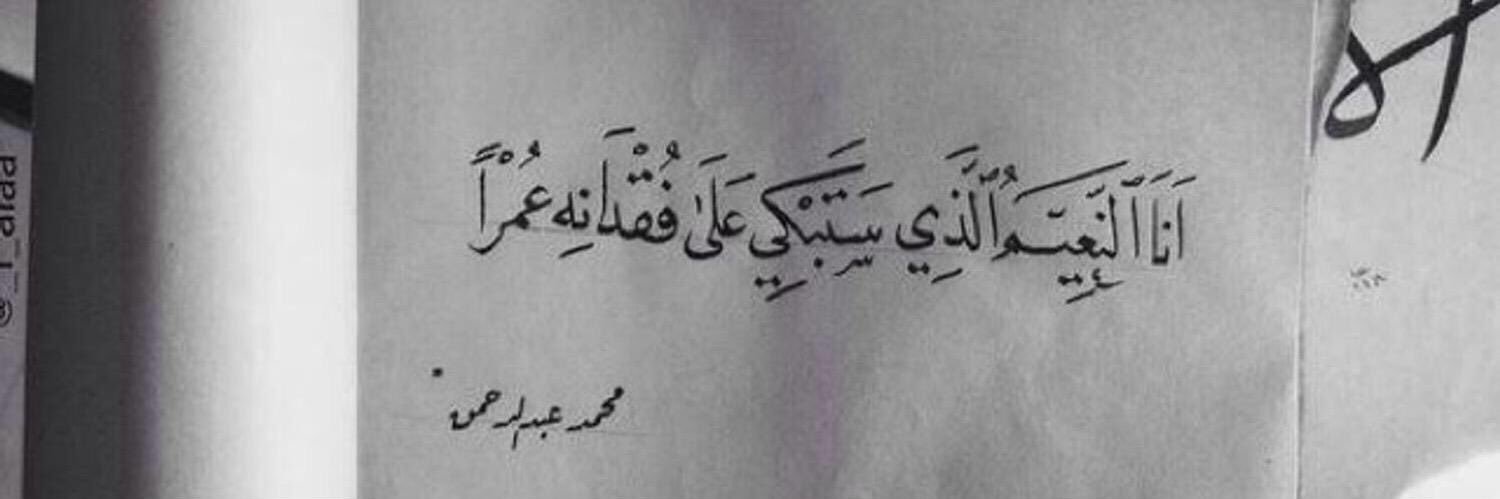 اَنَاَ ٱلنَّعِيّـمَُ ٱلَّذِي سَتَبْكِي عَلَىٰ فُقْدَانِه عُمْرًا
محمد عبدالرحمن